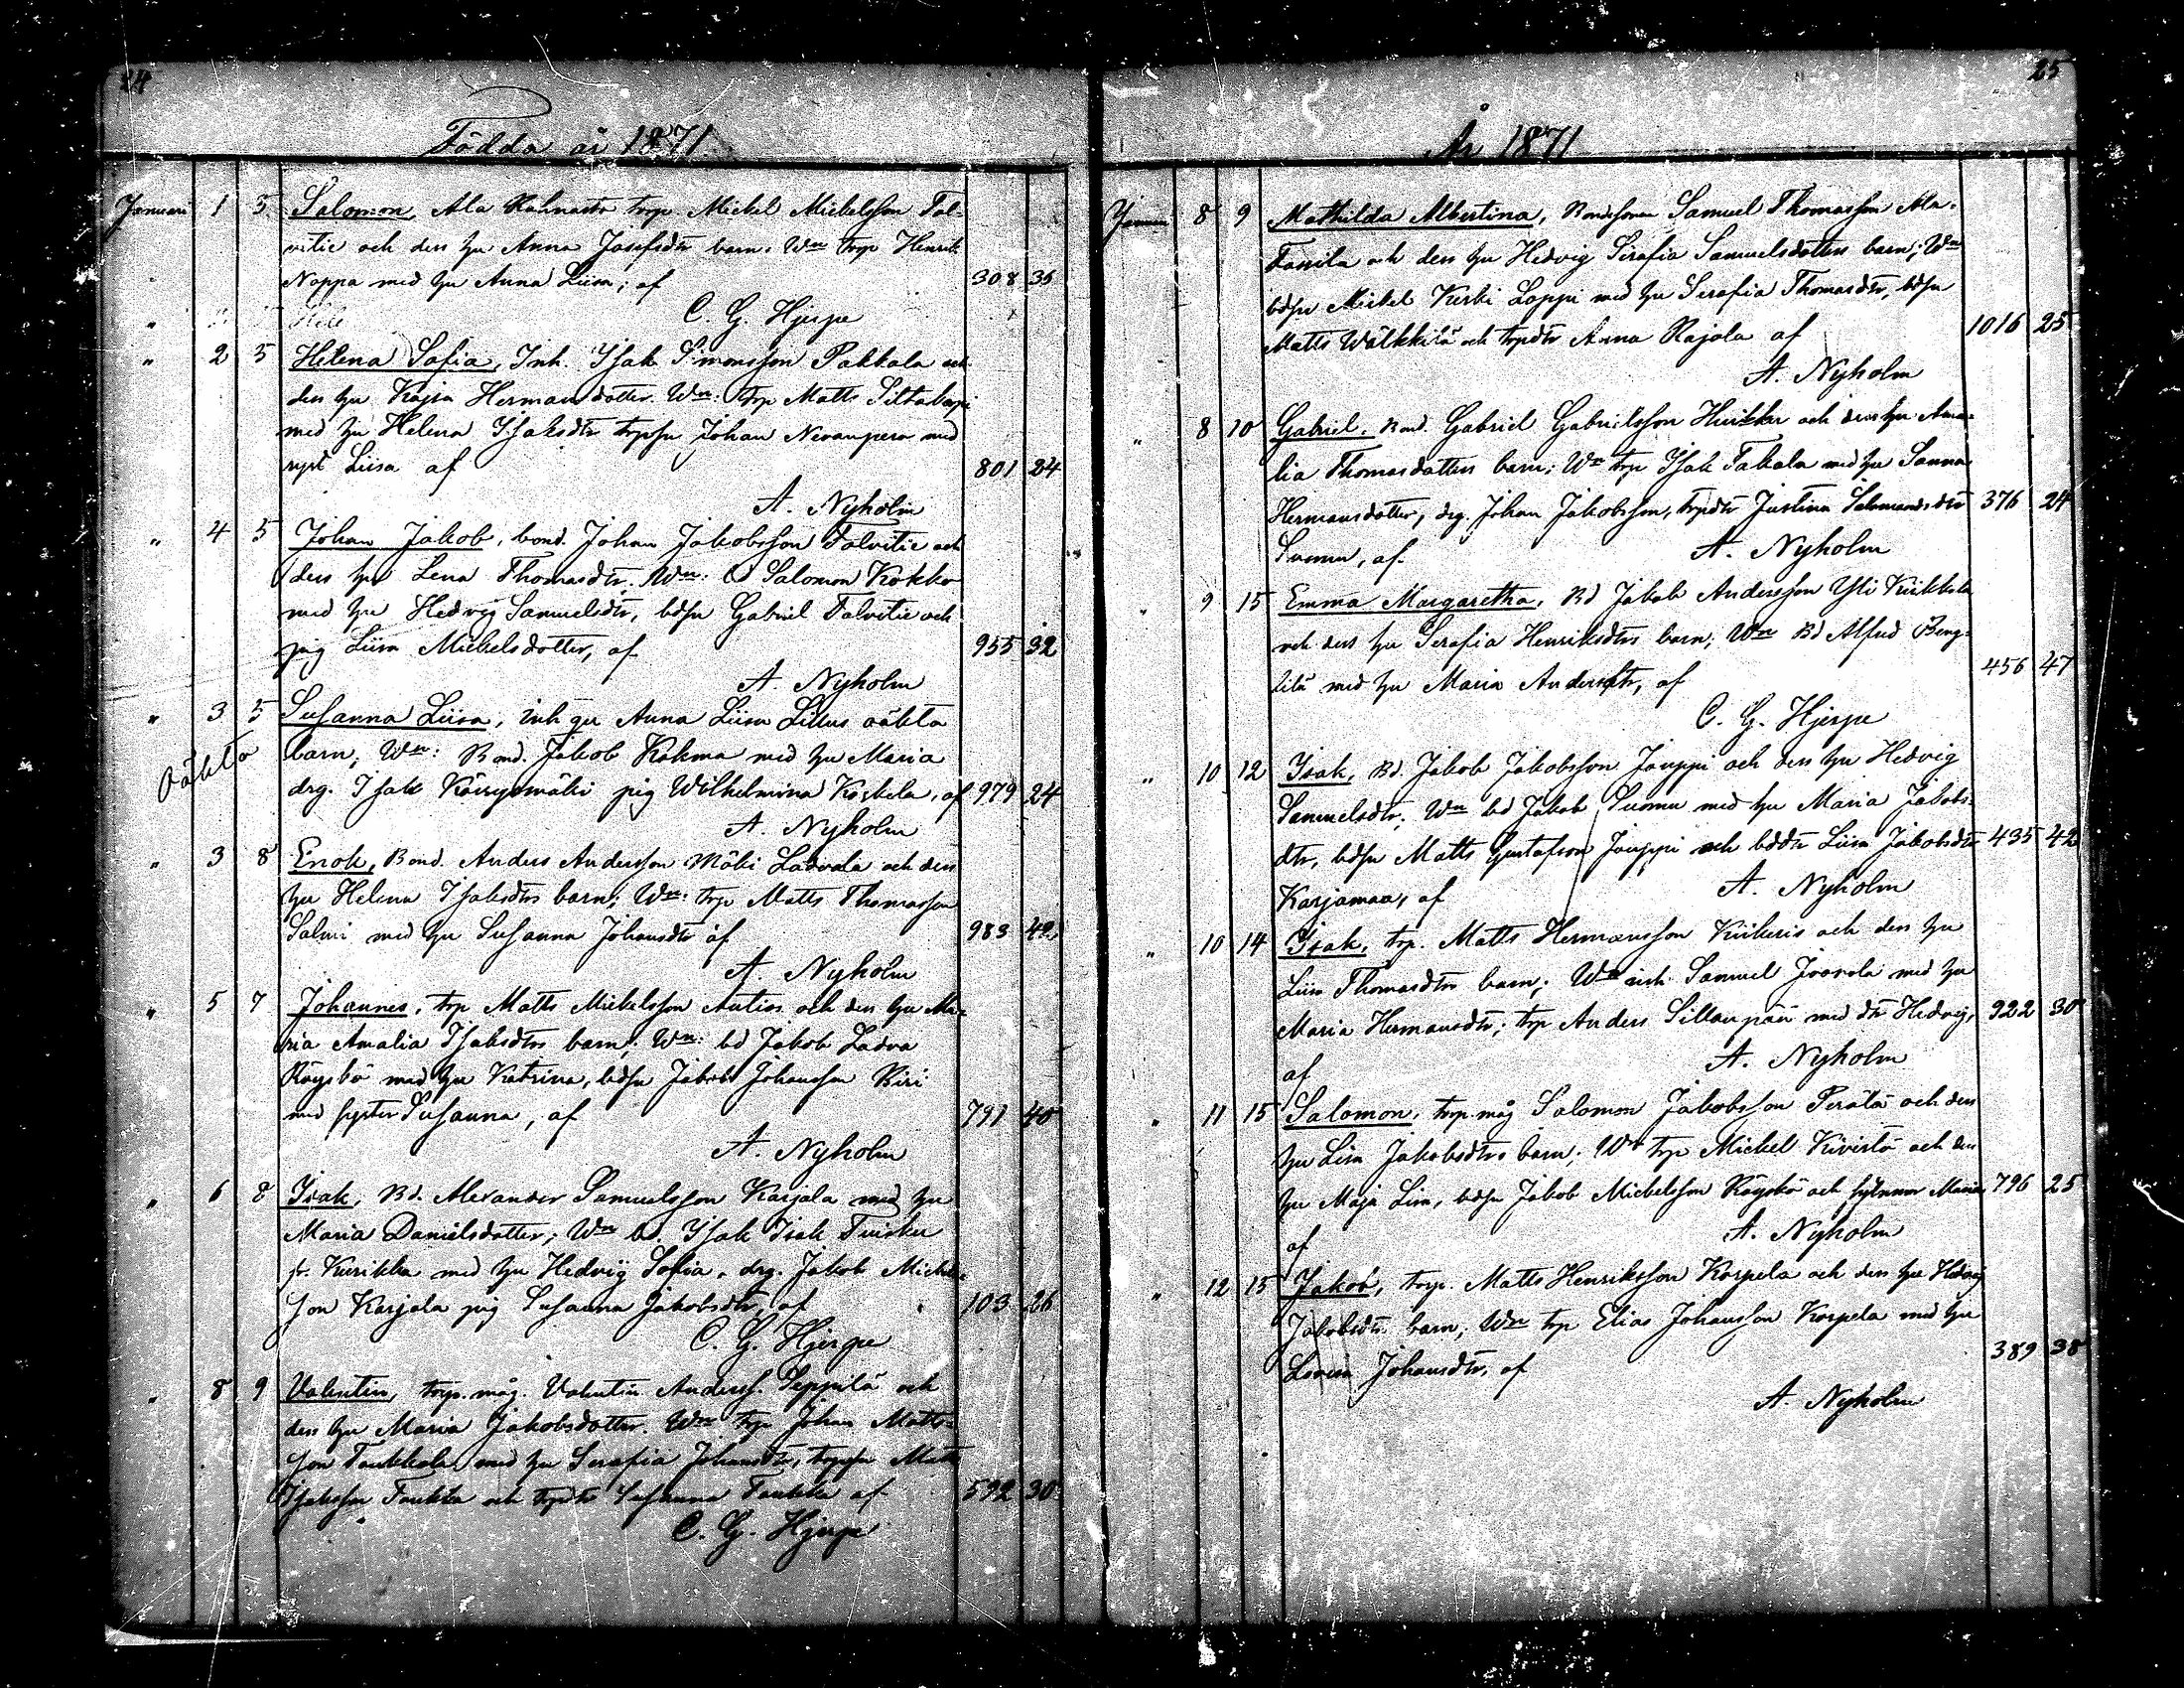 24
Födda år 1871.
Januari 1 5 Salomon, Ala Kahnasto trp. Mickel Mickelsson Tal-
vitie och dess hu Anna Josefsdtr barn. Wn: trp Henrik
Noppa med hu Anna Liisa; af 308 35
C. G. Hjerpe
" 2 5 Helena Sofia, Inh. Isak Simonsson Pakkala och
dess hu Kajsa Hermansdotter. Wn: trp Matts
med hu Helena Isaksdtr trpsn Johan Nevanpera med
Liisa af 801 24
A. Nyholm
" 4 5 Johan Jakob, bond. Johan Jakobsson Talvitie och
dess hu Lena Thomasdtr. Wn: Salomon Kokko
med hu Hedvig Samuelsdtr, bdsn Gabriel Talvitie och
pig Liisa Mickelsdotter, af 955 32
A. Nyholm
" 3 5 Susanna Liisa, inh qu Anna Liisa Lillus oäkta
Oäkta
barn, Wn: Bond. Jakob Kakma med hu Maria
drg. Isak pig Wilhelmina Koskela, af 979 24
A. Nyholm
" 3 8 Enok, Bond. Anders Andersson Mäki Ladvala och dess
hu Helena Isaksdtrs barn; Wn: trp Matts Thomasson
Salmi med hu Susanna Johansdtr af 983 42
A. Nyholm
" 5 7 Johannes, trp Matts Mickelsson Autios och dess hu Ma-
ria Amalia Isaksdtrs barn; Wn: bd Jakob Ladva
Röyskö med hu Katrina, bdsn Jakob Johansson Kiri
med syster Susanna, af 791 40
A. Nyholm
" 6 8 Isak, Bd. Alexander Samuelsson Karjala med hu
Maria Danielsdotter; Wn bd. Isak Isak Tuisku
fr. Kurikka med hu Hedvig Sofia, drg. Jakob Mickels-
son Karjala pig Susanna Jakobsdtr, af 103 26
C. G. Hjerpe
" 8 9 Valentin, trp. måg. Valentin Anderss. Seppilä och
dess hu Maria Jakobsdotter. Wn trp Johan Matts-
son Taukkala med hu Serafia Johansdtr, trpsn Matts
Isaksson Taukka och trpdtr Susanna Taukka af 592 30
C. G. Hjerpe
25
År 1871
Januari 8 9 Mathilda Albertina, Bondsonen Samuel Thomasson Ala-
Fossila och dess hu Hedvig Serafia Samuelsdotters barn; Wn
bdsn Mickel Keski Loppi med hu Serafia Thomasdtr, bdsn
Matts Wälkkilä och trpdtr Anna Rajala af 1016 25
A. Nyholm
" 8 10 Gabriel. Bond. Gabriel Gabrielsson och dess hu Ama-
lia Thomasdotters barn; Wn trp Isak Takala med hu Sanna
Hermansdotter, drg. Johan Jakobsson, trpdtr Justina Salomonsdtr 376 24
Suomu, af
A. Nyholm
" 9 15 Emma Margaretha, Bd Jakob Andersson Yli
och dess hu Serafia Henriksdtrs barn; Wn Bd Alfred Beng-
tilä med hu Maria Andersdtr, af 456 47
C. G. Hjerpe
" 10 12 Isak, Bd. Jakob Jakobsson Jouppi och dess hu Hedvig
Samuelsdtr, Wn bd Jakob Suomu med hu Maria Jakobs-
dtr, bdsn Matts Gustafsson Jouppi och bddtr Liisa Jakobsdtr 435 42
Karjamaa, af
A. Nyholm
" 10 14 Isak, trp. Matts Hermansson Kiikeris och dess hu
Liisa Thomasdtrs barn; Wn inh Samuel med hu
Maria Hermansdtr; trp Anders Sillanpää med dtr Hedvig, 922 30
af
A. Nyholm
" 11 15 Salomon, trp. måg Salomon Jakobsson Perätä och dess
hu Lisa Jakobsdtrs barn; Wn trp Mickel Kivistö och dess
hu Maja Lisa, bdsn Jakob Mickelsson Röyskö och Maria 796 25
af
A. Nyholm
" 12 15 Jakob, trp. Matts Henriksson Korpela och dess hu Hedvig
Jakobsdtr barn; Wn trp Elias Johansson Korpela med hu
Lovisa Johansdtr, af 389 38
A. Nyholm